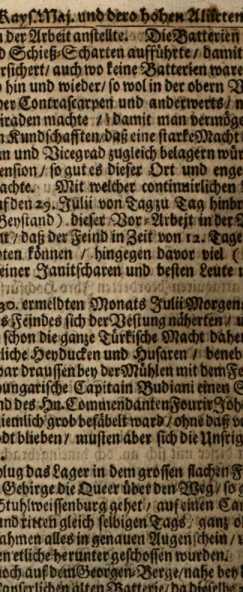 Kays. Maj. und dero hohen Aliirten
der Arbeit anstellte. Die Batterien
Schieß-Scharten auffführte / damit
rsichert / auch wo keine Batterien ware
hin und wieder / so wol in der obern V
der Contrascarpen und anderwerts / m
iraden machte / damit man vermöge
n Kundschafften / daß eine starke Macht
n und Vicegrad zugleich belagern wür
ension / so gut es dieser Ort und enge
achte. Mit welcher continuirlichen
f den 29. Julii von Tag zu Tag hinbr
Beystand) dieser Vor-Arbeit in der
/ daß der Feind in Zeit von 12. Tage
ten können / hingegen davor viel (
einer Janitscharen und besten Leute
30. ermeldten Monats Julii Morgen
s Feindes sich der Vestung näherten /
schon die gantze Türkische Macht dahe
liche Heyducken und Husaren / beneb
bar draussen bey der Mühlen mit dem Fe
ungarische Capitain Budiani einen
nd des Hn. Commendanten Fourir Joh
iemlich grob gesäbelt ward / ohne daß v
dt blieben / musten aber sich die Unsrig
lug das Lager in dem grossen flachen F
Gebirge die Queer über den Weg / so
Stuhlweissenburg gehet / auf einen Ca
nd ritten gleich selbigen Tags / gantz
ahmen alles in genauen Augenschein /
en etliche herunter geschossen wurden.
noch auf dem Georgen-Berge / nahe bey
Käyserlichen alten Batterie / da dieselbe